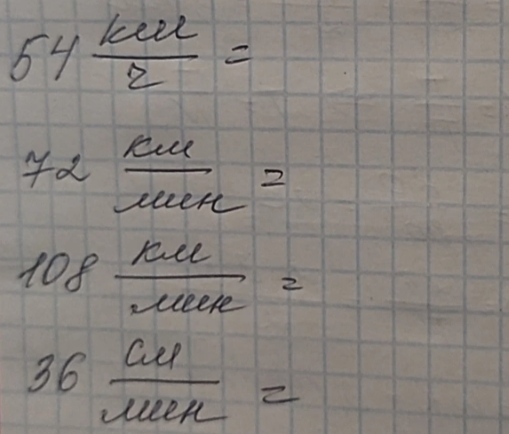 54 км/ч =
72 км/мин =
108 км/мин =
36 см/мин =